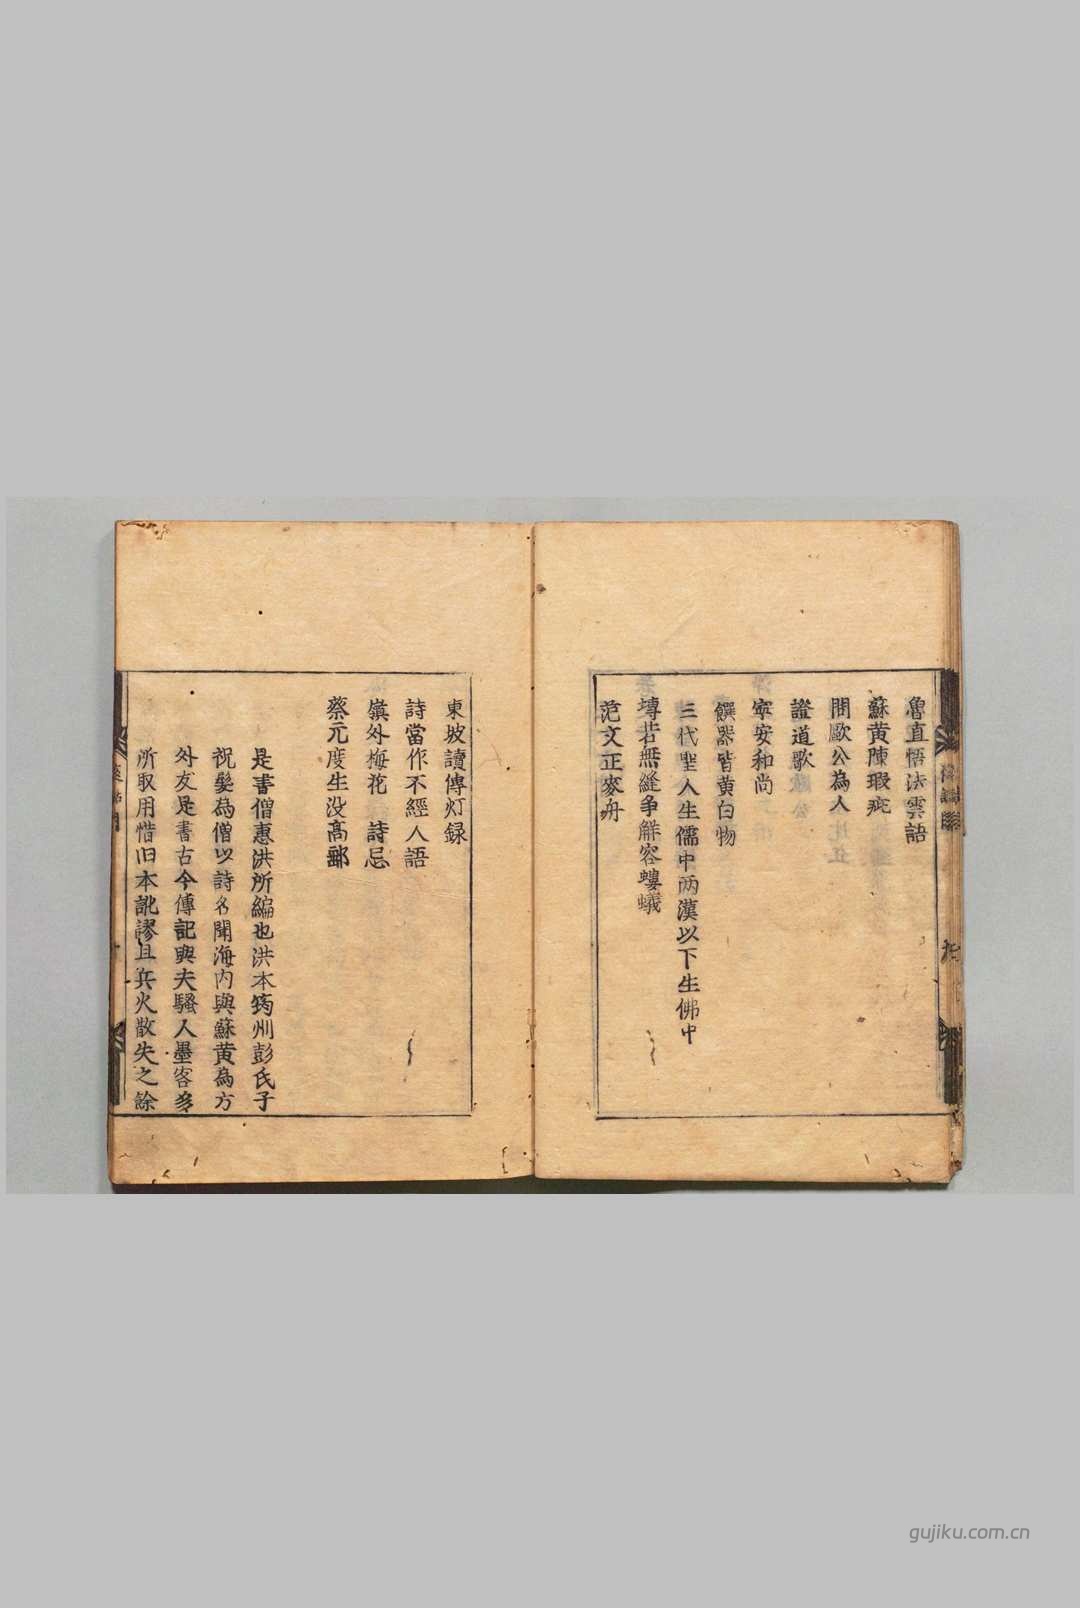 魯直悟法雲語
蘇黄陳瑕疵
問歐公為人
證道歌
寜安和尚
饌器皆黄白物
三代聖人生儒中两漢以下生佛中
塼若無縫争解容螻蟻
范文正麥舟
東坡讀傳灯録
詩當作不經人語
嶺外梅花 詩忌
蔡元度生没髙郵
是書僧惠洪所編也洪本筠州彭氏子
祝髪為僧以詩名聞海内與蘇黄為方
外友是書古今傳記與夫騷人墨客多
所取用惜旧本訛謬且兵火散失之餘
gujiku.com.cn